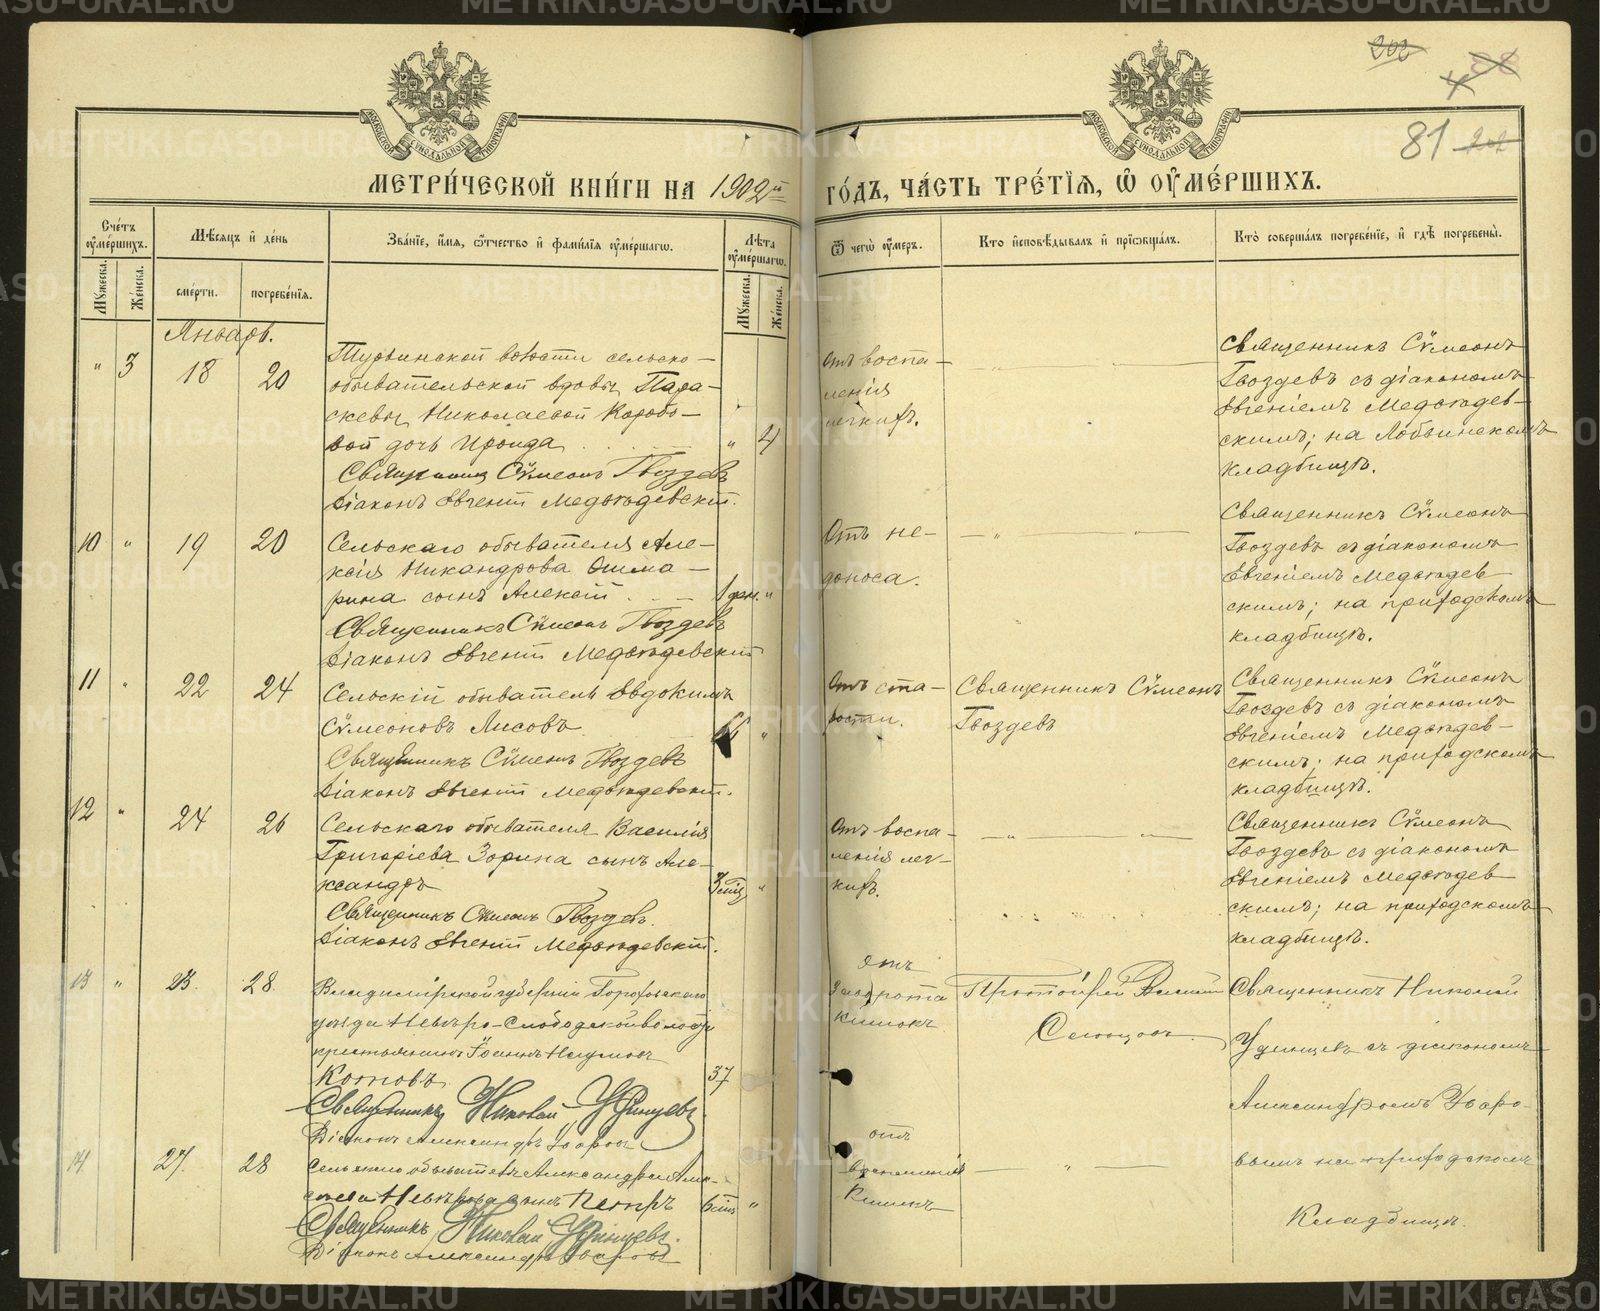 202
88
4
81 202
МОСКОВСКОЙ СѴНОДАЛЬНОЙ ТИПОГРАФІИ
МОСКОВСКОЙ СѴНОДАЛЬНОЙ ТИПОГРАФІИ
МЕТРИ́ЧЕСКОЙ КНИ́ГИ НА 1902й ГО́ДЪ, ЧА́СТЬ ТРЕ́ТІѦ, Ѡ҆ ОУ҆МЕ́РШИХЪ.
Сче́тъ оу҆ме́ршихъ.
Мѣ́сяцъ и҆ де́нь
Зва́нїе, и҆́мѧ, ѻ҆́тчество и҆ фами́лїѧ оу҆ме́ршагѡ.
Лѣ́та оу҆ме́ршагѡ.
Ѿ чегѡ̀ оу҆́меръ.
Кто̀ и҆сповѣ́дывалъ и҆ прїѡбща́лъ.
Кто̀ соверша́лъ погребе́нїе, и҆ гдѣ̀ погребены̀.
Мꙋ́жеска.
Же́нска.
сме́рти.
погребе́нїѧ.
Мꙋ́жеска.
Же́нска.
Январь.
" 3 18 20
Турьинской волости сельско-
обывательской вдовы Пара-
скевы Николаевой Коробо-
вой дочь Ираида " 4
Священникъ Сѵмеонъ Гвоздевъ
Діаконъ Евгеній Медвѣдевскій.
Отъ воспа-
ленія
легкихъ.
Священникъ Сѵмеонъ
Гвоздевъ съ діакономъ
Евгеніемъ Медвѣдев-
скимъ; на Лобвинскомъ
кладбищѣ.
10 " 19 20
Сельскаго обывателя Але-
ксія Никандрова Ошма-
рина сынъ Алексій 1 ден. "
Священникъ Сѵмеонъ Гвоздевъ
Діаконъ Евгеній Медвѣдевскій
Отъ не-
доноса.
Священникъ Сѵмеонъ
Гвоздевъ съ діакономъ
Евгеніемъ Медвѣдев
скимъ; на приходскомъ
кладбищѣ.
11 " 22 24
Сельскій обыватель Евдокимъ
Сѵмеоновъ Лисовъ "
Священникъ Сѵмеонъ Гвоздевъ
Діаконъ Евгеній Медвѣдевскій.
Отъ ста-
рости.
Священникъ Сѵмеонъ
Гвоздевъ
Священникъ Сѵмеонъ
Гвоздевъ съ діакономъ
Евгеніемъ Медвѣдев-
скимъ; на приходскомъ
кладбищѣ.
12 " 24 26
Сельскаго обывателя Василія
Григоріева Зорина сынъ Але-
ксандръ 3 мѣс. "
Священникъ Сѵмеонъ Гвоздевъ.
Діаконъ Евгеній Медвѣдевскій.
Отъ воспа-
ленія лег-
кихъ.
Священникъ Сѵмеонъ
Гвоздевъ съ діакономъ
Евгеніемъ Медвѣдев
скимъ; на приходскомъ
кладбищѣ.
13 " 23. 28
Владимірской губерніи Гороховскаго
уѣзда Невѣро-Слободской волости
крестьянинъ Іоаннъ Наумовъ
Котовъ 37
Священникъ Николай Удинцевъ
Діаконъ Александръ Уваровъ
отъ
заворота
кишокъ
Протоіерей Василій
Священникъ Николай
Удинцевъ съ діакономъ
Александромъ Уваро-
вымъ на приходскомъ
Кладбищѣ.
14 27. 28
Сельскаго обывателя Александра Алек-
сѣева Невѣрова сынъ Петръ 6 мѣс "
Священникъ Николай Удинцевъ.
Діаконъ Александръ Уваровъ
отъ
воспаленія
Кишекъ
METRIKI.GASO-URAL.RU